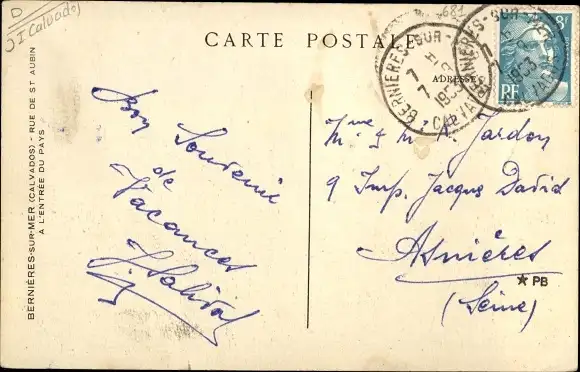 D
I (Calvados)
681
CARTE POSTALE
ADRESSE
BERNIÈRES-SUR-MER (CALVADOS) - RUE DE ST AUBIN
A L'ENTRÉE DU PAYS
Bon Souvenir
de
Vacances
BERNIERES-SUR-
7 H
7 - 8
1953
CALVADOS
BERNIERES-SUR-
1953
CALVADOS
8F
RF
Mme & Mr Jardon
9 Imp. Jacques David
Asnières
(Seine)
★ PB